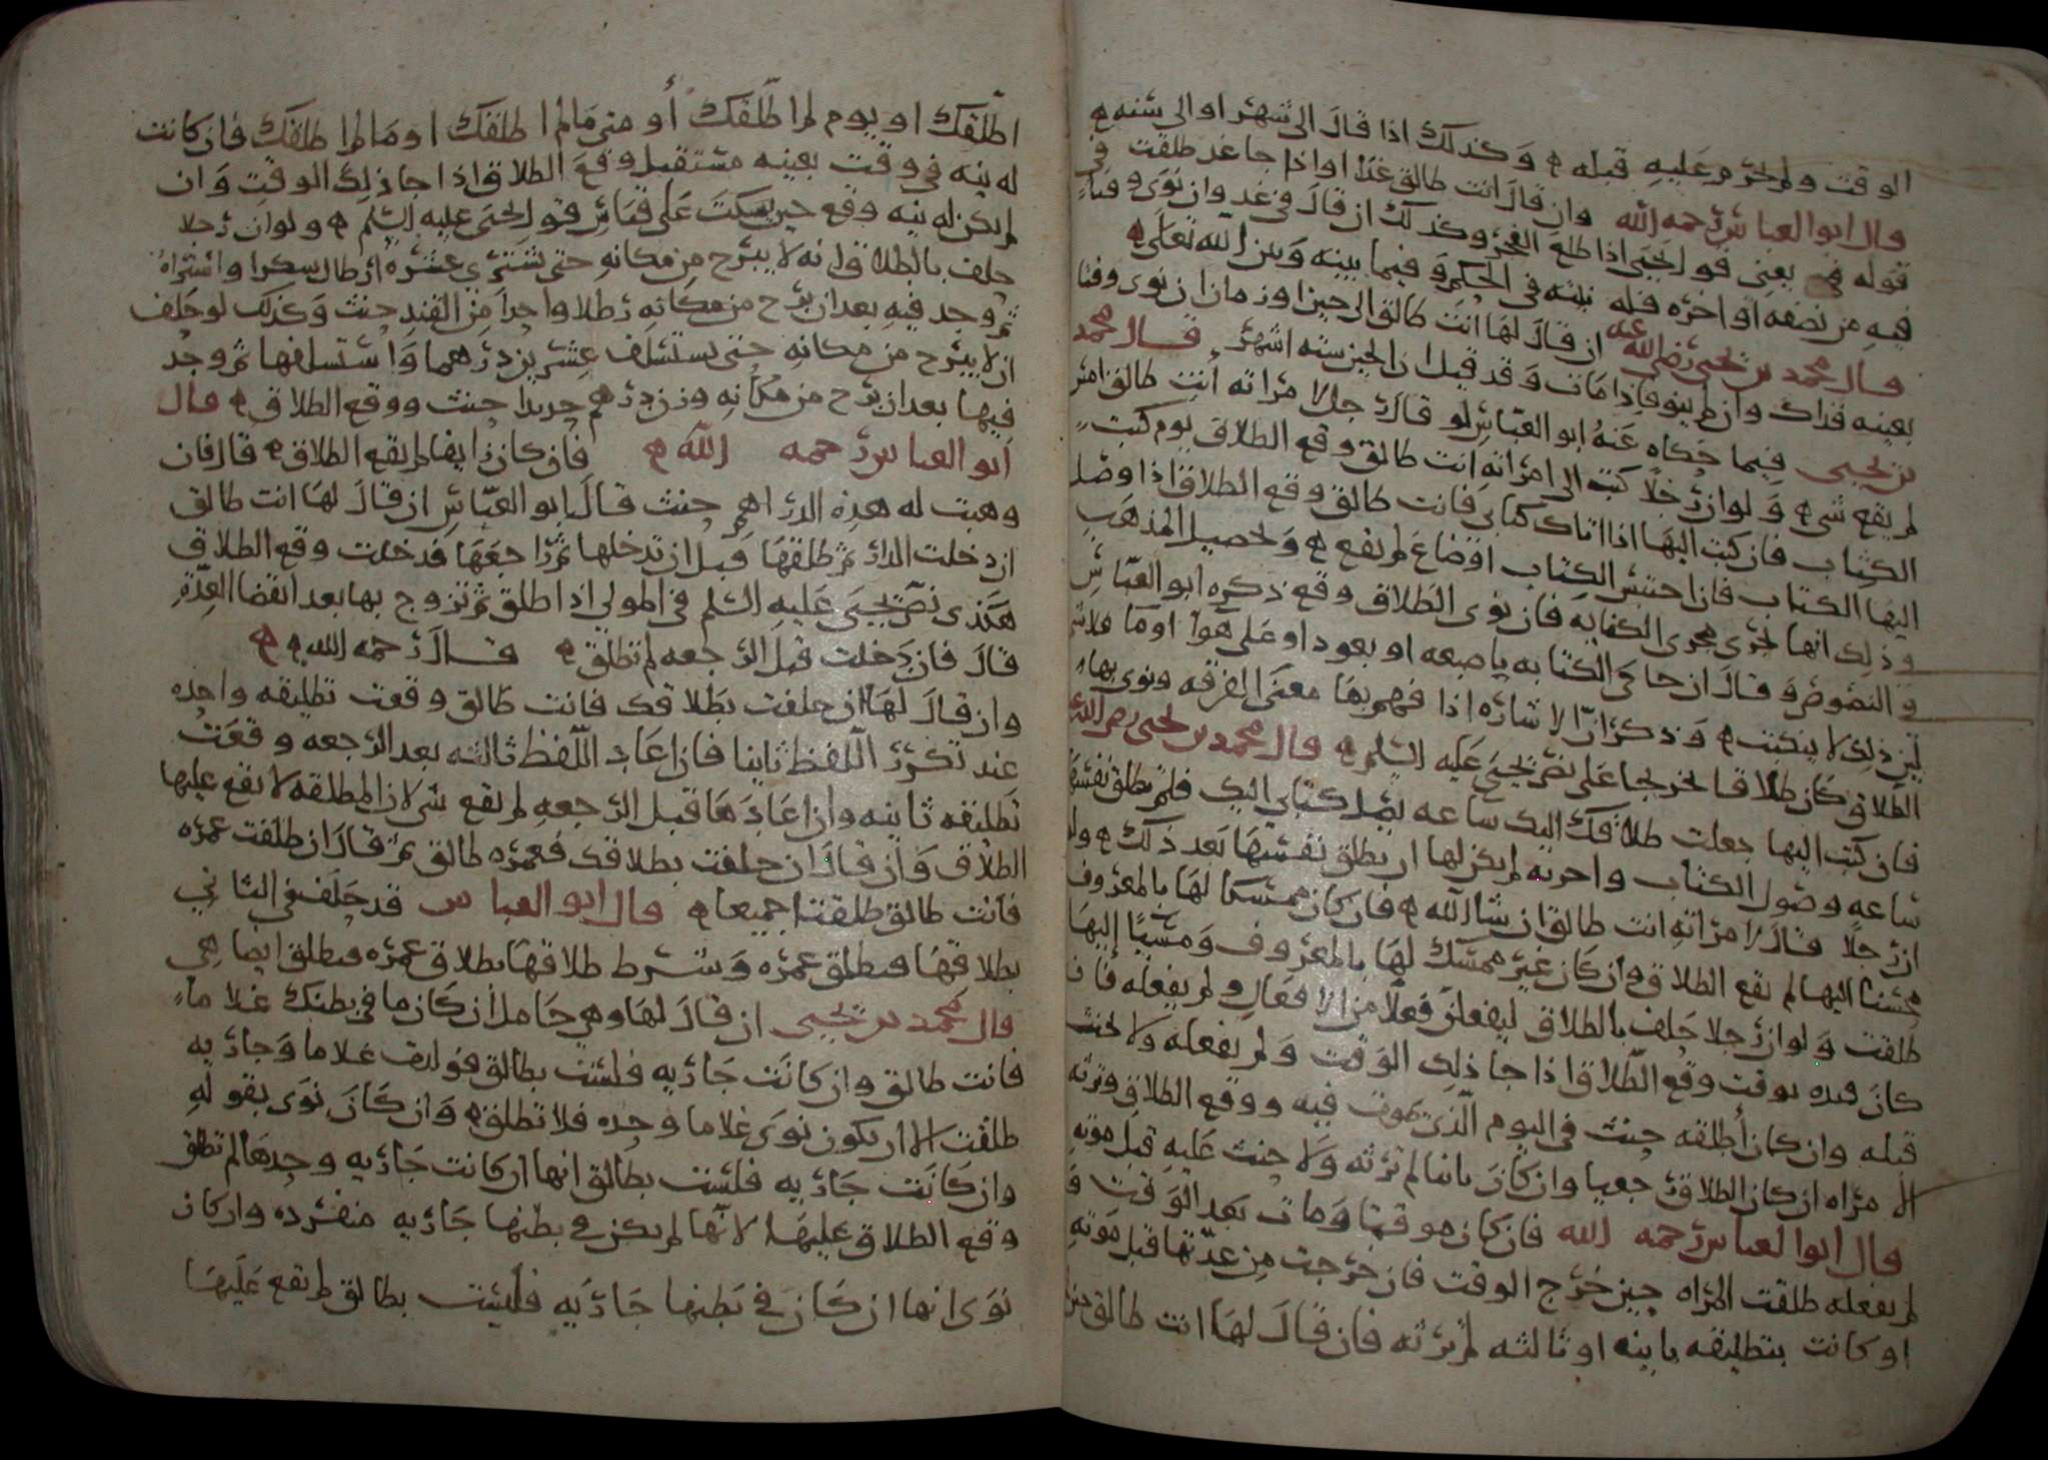 الوقت ولم تحرم عليه قبله ۞ وكذلك اذا قال الى شهر او الى سنه ۞
قال ابو العباس رحمه الله وان قال انت طالق غدا او اذا جا غد طلقت في
قوله يعني قول يحيى اذا طلع الفجر وكذلك ان قال في غد وان نوى وقتاً
فيه من نصفه او اخره فله نيته في الحكم وفيما بينه وبين الله تعالى ۞
قال محمد بن يحيى رضي الله عنه ان قال لها انت طالق الى حين او زمان ان نوى وقتا
بعينه فذاك وان لم ينو فاذا مات وقد قيل ان الحين سته اشهر قال محمد
بن يحيى فيما حكاه عنه ابو العباس لو قال رجل لامراته انت طالق امس
لم يقع شي ۞ ولو ان رجلا كتب الى امراته انت طالق وقع الطلاق يوم كتب
الكتاب فان كتب اليها اذا اتاك كتابي فانت طالق وقع الطلاق اذا وصل
اليها الكتاب فان احتبس الكتاب او ضاع لم يقع ۞ وتحصيل المذهب
وذلك انها تجرى مجرى الكنايه فان نوى الطلاق وقع ذكره ابو العباس
في النصوص وقال ان حاكى الكتابه باصبعه او بعود او على هوا او ما فلا شي
لين ذلك لا ينكتب ۞ وذكر ان الاشاره اذا فهم بها معنى الفرقه ونوى بها
الطلاق كان طلاقا تخريجا على نص يحيى عليه السلم ۞ قال محمد بن يحيى رحمه الله
فان كتب اليها جعلت طلاقك اليك ساعه يصل كتابي اليك فلم تطلق نفسها
ساعه وصول الكتاب واخرته لم يكن لها ان تطلق نفسها بعد ذلك ۞ ولو
ان رجلا قال لامراته انت طالق ان شا الله ۞ فان كان ممسكا لها بالمعروف
محسنا اليها لم يقع الطلاق وان كان غير ممسك لها بالمعروف ومسيًا إليها
طلقت ولو ان رجلا حلف بالطلاق ليفعلن فعلاً من الافعال ولم يفعله فان
كان قيده بوقت وقع الطلاق اذا جا ذلك الوقت ولم يفعله ولا يحنث
قبله وان كان أطلقه حنث في اليوم الذي يموت فيه ووقع الطلاق وترثه
الامراه ان كان الطلاق رجعيا وان كان باينا لم ترثه ولا حنث عليه قبل موته
قال ابو العباس رحمه الله فان كان موقتا ومات بعد الوقت و
لم يفعله طلقت المراه حين خرج الوقت فان خرجت من عدتها قبل موته
او كانت بتطليقه باينه او ثالثه لم ترثه فان قال لها انت طالق حين
اطلقك او يوم لم اطلقك أو متى ما لم اطلقك او ما لم اطلقك فان كانت
له نيه في وقت بعينه مستقبل وقع الطلاق اذا جا ذلك الوقت وان
لم يكن له نيه وقع حين يسكت على قياس قول يحيى عليه السلم ۞ ولو ان رجلا
حلف بالطلاق انه لا يبرح من مكانه حتى تشترى عشره ارطال سكرا واشتراه
ثم وجد فيه بعد ان برح من مكانه رطلا واحدا من القند حنث وكذلك لو حلف
ان لا يبرح من مكانه حتى يستسلف عشرين درهما واستسلفها ثم وجد
فيها بعد ان برح من مكانه وزن درهم حديدا حنث ووقع الطلاق ۞ قال
ابو العباس رحمه الله ۞ فان كان زايفا لم يقع الطلاق ۞ قال فان
وهبت له هذه الدراهم حنث قال ابو العباس ان قال لها انت طالق
ان دخلت الدار ثم طلقها قبل ان تدخلها ثم راجعها فدخلت وقع الطلاق
هكذى نص يحيى عليه السلم في المولي اذا طلق ثم تزوج بها بعد انقضا العدة
قال فان دخلت قبل الرجعه لم تطلق ۞ قال رحمه الله ۞ ۞
وان قال لها ان حلفت بطلاقك فانت طالق وقعت تطليقه واحده
عند تكرر اللفظ ثانيا فان اعاد اللفظ ثالثه بعد الرجعه وقعت
تطليقه ثانيه وان اعادها قبل الرجعه لم يقع شي لان المطلقه لا يقع عليها
الطلاق وان قال ان حلفت بطلاقك فعمره طالق ثم قال ان طلقت عمره
فانت طالق طلقتا جميعا ۞ قال ابو العباس قد حلف في الثاني
بطلاقها فتطلق عمره وشرط طلاقها بطلاق عمره فتطلق ايضا هي
قال محمد بن يحيى ان قال لها وهي حامل ان كان ما في بطنك غلاماً
فانت طالق وان كانت جاريه فلست بطالق فولدت غلاما وجاريه
طلقت الا ان يكون نوى غلاما وحده فلا تطلق ۞ وان كان نوى بقوله
وان كانت جاريه فلست بطالق انها ان كانت جاريه وحدها لم تطلق
وقع الطلاق عليها لانها لم يكن في بطنها جاريه منفرده وان كان
نوى انها ان كان في بطنها جاريه فليست بطالق لم يقع عليها